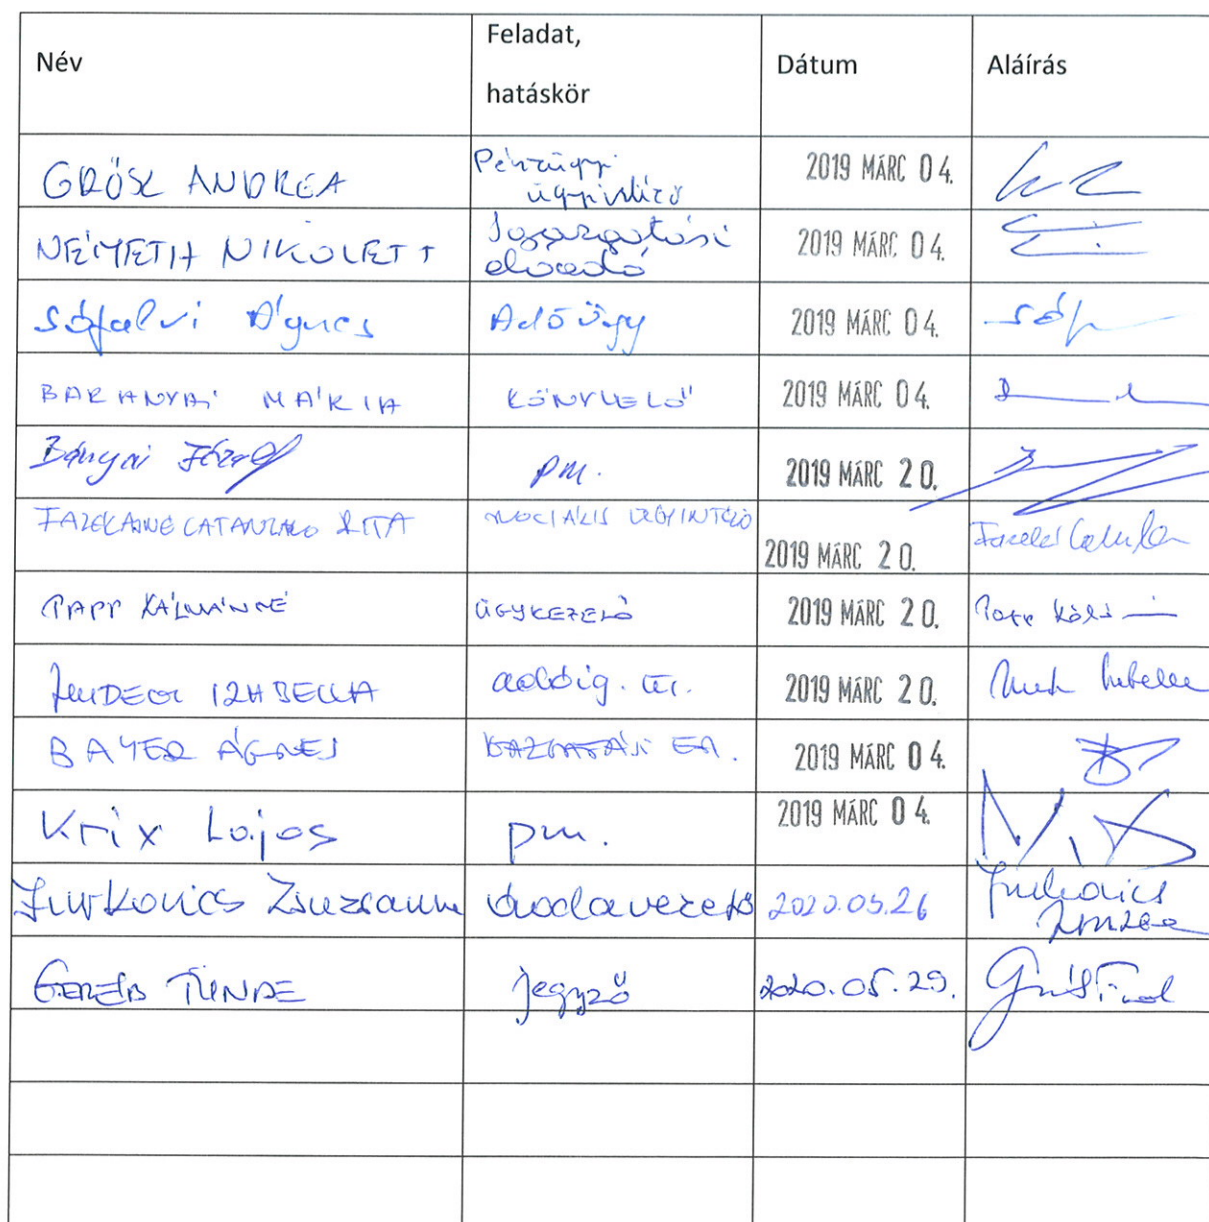 Név
Feladat,
hatáskör
Dátum
Aláírás
GRÓSZ ANDREA
Pénzügyi
ügyintéző
2019 MÁRC 04.
NÉMETH NIKOLETT
Igazgatási
előadó
2019 MÁRC 04.
Sófalvi Ágnes
Adóügy
2019 MÁRC 04.
Sóf
BARANYAI MÁRIA
KÖNYVELŐ
2019 MÁRC 04.
Bányai József
pm.
2019 MÁRC 20.
FAZEKASNÉ CATANZARO RITA
SZOCIÁLIS ÜGYINTÉZŐ
2019 MÁRC 20.
PAPP KÁLMÁNNÉ
ÜGYKEZELŐ
2019 MÁRC 20.
Papp Kálm
IZABELLA
adóig. üi.
2019 MÁRC 20.
BAYER ÁGNES
IGAZGATÁSI EA.
2019 MÁRC 04.
Krix Lajos
pm.
2019 MÁRC 04.
Jurkovics Zsuzsanna
óvodavezető
2020.05.26
Jurkovics
Zsuzsa
GERÉB TÜNDE
jegyző
2020.05.29.